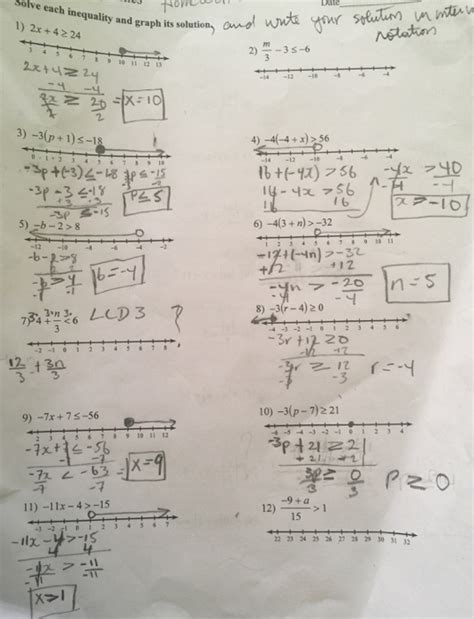 Solve each inequality and graph its solution, and write your solution in interval notation
1) 2x + 4 ≥ 24
8 9 10 11 12 13
2x+4 ≥ 24
-4 -4
2x/2 ≥ 20/2 = x=10
2) m/3 - 3 ≤ -6
-14 -12 -10 -8 -6 -4
3) -3(p + 1) ≤ -18
0 1 2 3 4 5 6 7 8 9 10
-3p+(-3) ≤ -18
-3p - 3 ≤ -18
+3 +3
-3p ≤ -15
p ≤ 5
4) -4(-4 + x) > 56
-14 -12 -10 -8 -6 -4
16+(-4x) > 56
16 - 4x > 56
16 16
-4x > 40
-4 -4
x > -10
5) -b - 2 > 8
-12 -10 -8 -6 -4 -2
-b-2 > 8
b = -4
6) -4(3 + n) > -32
1 2 3 4 5 6 7 8 9 10 11
-12+(-4n) > -32
+12 +12
-4n > -20
-4
n = 5
7) 4 + n/3 < 6 LCD 3 ?
-2 -1 0 1 2 3 4 5 6 7 8
12/3 + 3n/3
8) -3(r - 4) ≥ 0
-4 -3 -2 -1 0 1 2 3 4 5 6
-3r + 12 ≥ 0
-12 +2
-3r ≥ 12
-3 -3
r = -4
9) -7x + 7 ≤ -56
2 3 4 5 6 7 8 9 10 11 12
-7x+7 ≤ -56
-7x < -63
-7 -7
= x=9
10) -3(p - 7) ≥ 21
-6 -5 -4 -3 -2 -1 0 1 2 3 4
-3p + 21 ≥ 21
3p/3 ≥ 0/3 p ≥ 0
11) -11x - 4 > -15
-3 -2 -1 0 1 2 3 4 5 6 7
-11x - 4 > -15
4 4
-11x > -11
-11 -11
x > 1
12) (-9 + a)/15 > 1
22 23 24 25 26 27 28 29 30 31 32